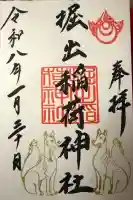 奉拝
堀出稲荷神社
令和八年一月三十日